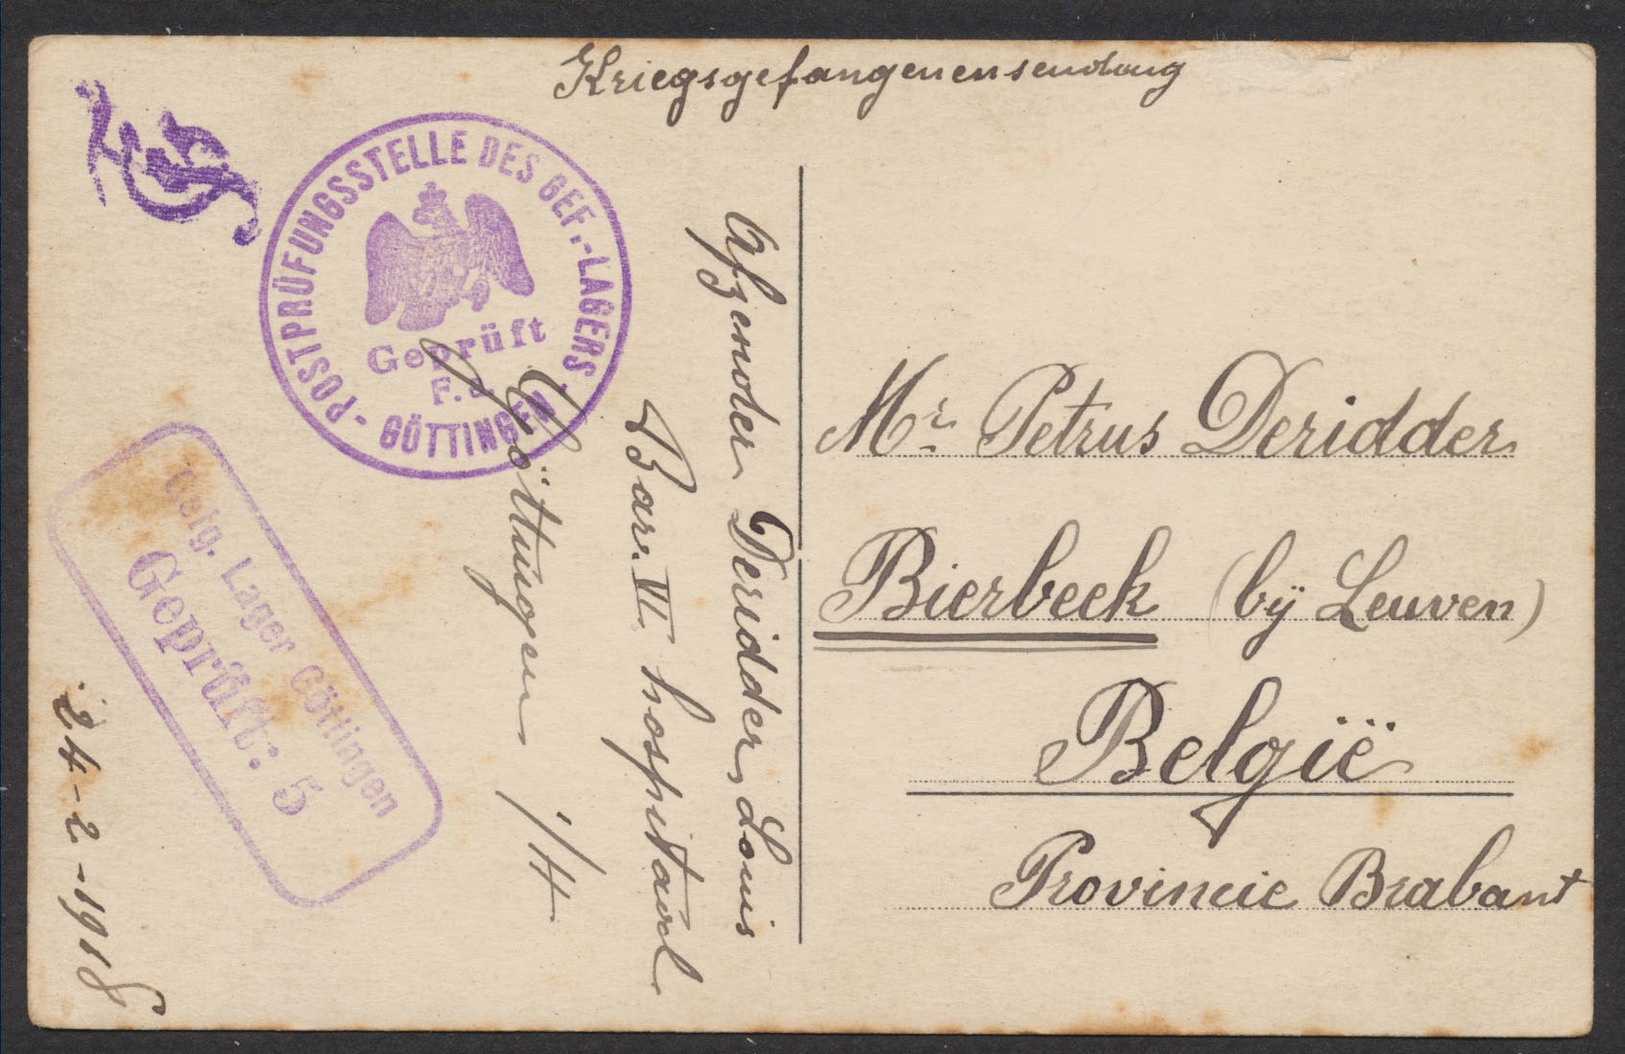 Kriegsgefangenensendung
POSTPRÜFUNGSSTELLE DES GEF.-LAGERS
- GÖTTINGEN -
Geprüft
F.a.
Gefg. Lager Göttingen
Geprüft: 5
Afzender Deridder Louis
Bar. VI hospitaal
Göttingen 1/4
24-2-1918
Mr Petrus Deridder
Bierbeek (bÿ Leuven)
België
Provincie Brabant